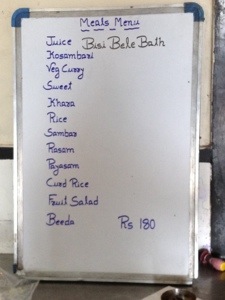 Meals Menu
Juice Bisi Bele Bath
Kosambari
Veg Curry
Sweet
Khara
Rice
Sambar
Rasam
Payasam
Curd Rice
Fruit Salad
Beeda Rs 180